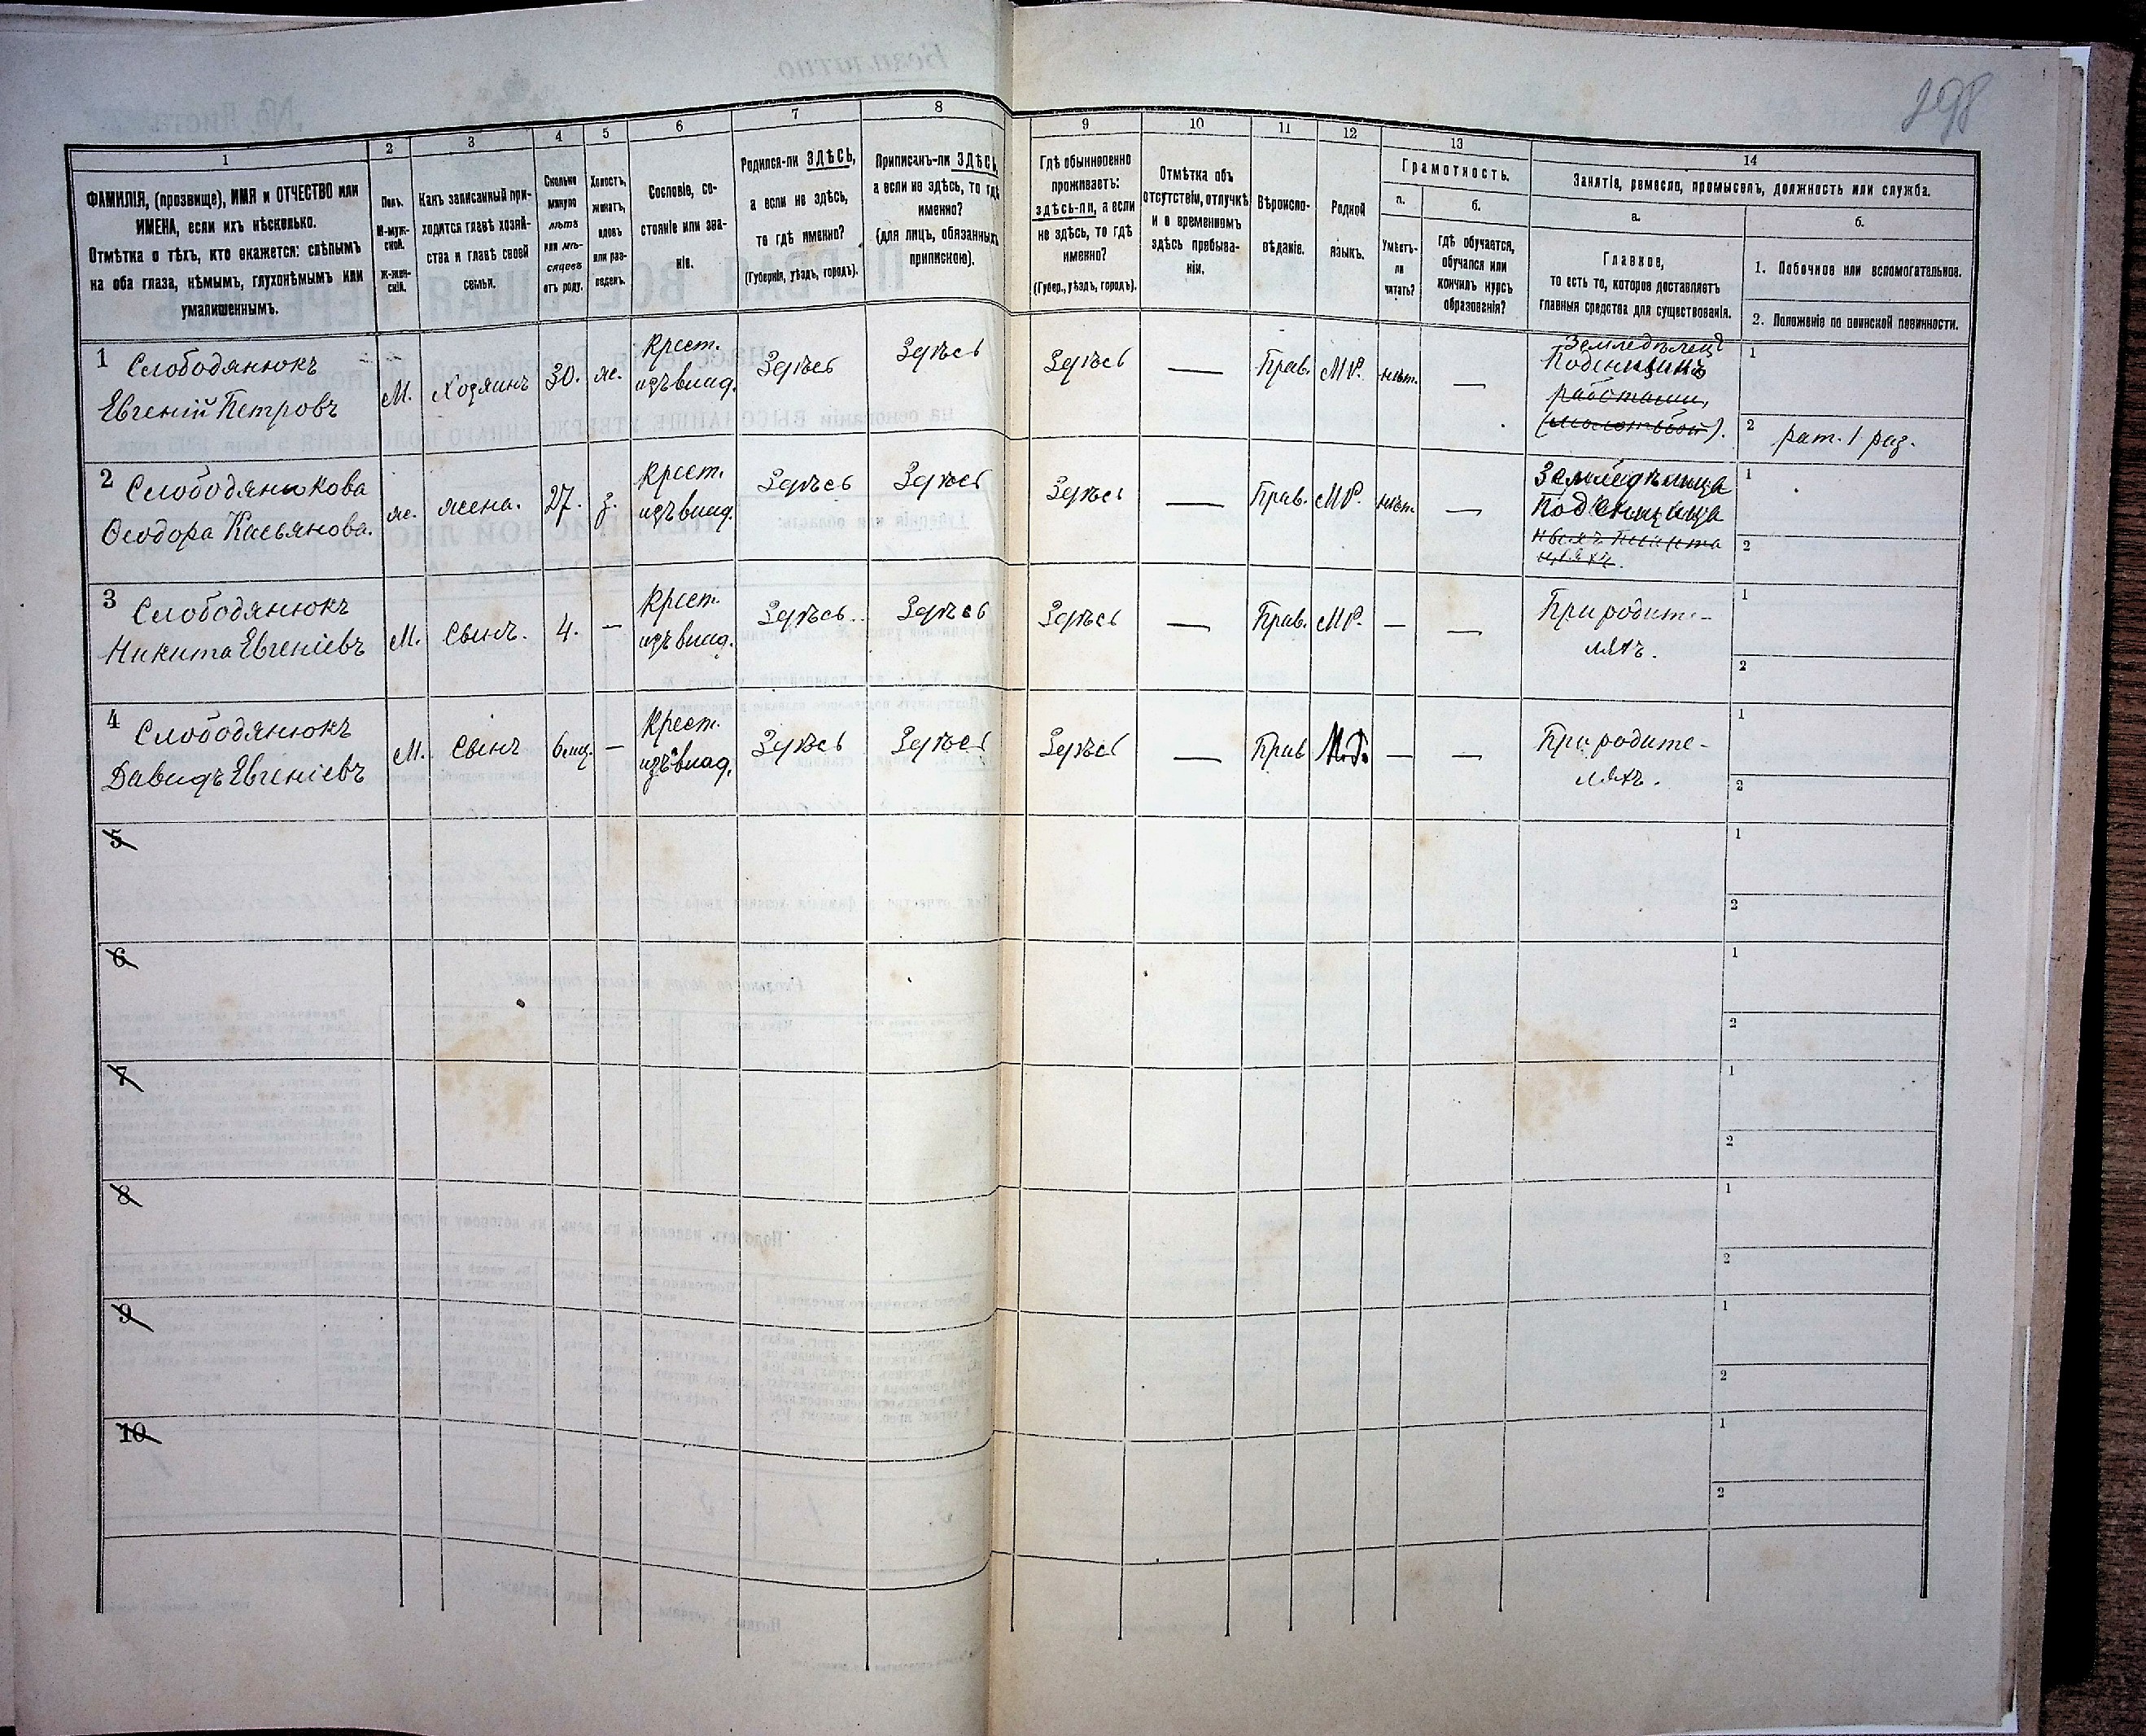 298
1
2
3
4
5
6
7
8
9
10
11
12
13
14
ФАМИЛІЯ, (прозвище), ИМЯ и ОТЧЕСТВО или
ИМЕНА, если ихъ нѣсколько.
Отмѣтка о тѣхъ, кто окажется: слѣпымъ
на оба глаза, нѣмымъ, глухонѣмымъ или
умалишеннымъ.
Полъ.
М-муж-
ской.
Ж-жен-
скій.
Какъ записанный при-
ходится главѣ хозяй-
ства и главѣ своей
семьи.
Сколько
минуло
лѣтъ
или мѣ-
сяцевъ
отъ роду.
Холостъ,
женатъ,
вдовъ
или раз-
веденъ.
Сословіе, со-
стояніе или зва-
ніе.
Родился-ли ЗДѢСЬ,
а если не здѣсь,
то гдѣ именно?
(Губернія, уѣздъ, городъ).
Приписанъ-ли ЗДѢСЬ,
а если не здѣсь, то гдѣ
именно?
(для лицъ, обязанныхъ
припискою).
Гдѣ обыкновенно
проживаетъ:
здѣсь-ли, а если
не здѣсь, то гдѣ
именно?
(Губер., уѣздъ, городъ).
Отмѣтка объ
отсутствіи, отлучкѣ
и о временномъ
здѣсь пребыва-
ніи.
Вѣроиспо-
вѣданіе.
Родной
языкъ.
Грамотность.
а.
Умѣетъ-
ли
читать?
б.
Гдѣ обучается,
обучался или
кончилъ курсъ
образованія?
Занятіе, ремесло, промыселъ, должность или служба.
а.
Главное,
то есть то, которое доставляетъ
главныя средства для существованія.
б.
1. Побочное или вспомогательное.
2. Положеніе по воинской повинности.
1 Слободянюкъ
Евгеній Петровъ
М.
Хозяинъ
30.
ж.
Крест.
изъ влад.
Здѣсь
Здѣсь
Здѣсь
—
Прав.
МР.
нѣт.
—
Земледѣлецъ
Поденщикъ
работами,
(молотьбой).
1
2 рат. 1 раз.
2 Слободянюкова
Ѳеодора Касьянова.
ж.
жена.
27.
з.
Крест.
изъ влад.
Здѣсь
Здѣсь
Здѣсь
—
Прав.
МР.
нѣт.
—
Земледѣлица
Поденщица
1
2
3 Слободянюкъ
Никита Евгеніевъ
М.
Сынъ.
4.
—
Крест.
изъ влад.
Здѣсь.
Здѣсь
Здѣсь
—
Прав.
МР.
—
—
При родите-
ляхъ.
1
2
4 Слободянюкъ
Давидъ Евгеніевъ
М.
Сынъ
6 мц.
—
Крест.
изъ влад.
Здѣсь
Здѣсь
Здѣсь
—
Прав
М.Р.
—
—
При родите-
ляхъ.
1
2
5
1
2
6
1
2
7
1
2
8
1
2
9
1
2
10
1
2